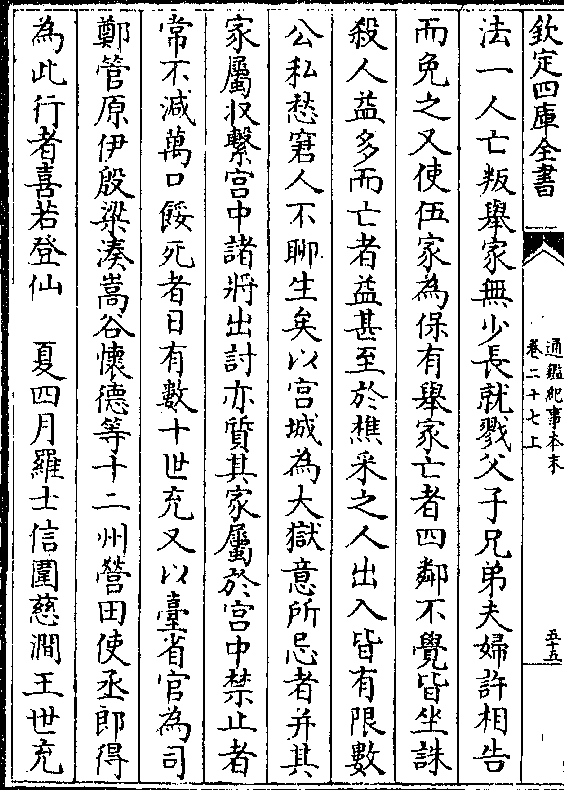 欽定四庫全書
通鑑紀事本末
卷二十七上
五十五
法一人亡叛舉家無少長就戮父子兄弟夫婦許相告
而免之又使伍家為保有舉家亡者四鄰不覺皆坐誅
殺人益多而亡者益甚至於樵采之人出入皆有限數
公私愁窘人不聊生矣以宮城為大獄意所忌者并其
家屬收繫宮中諸將出討亦質其家屬於宮中禁止者
常不減萬口餒死者日有數十世充又以臺省官為司
鄭管原伊殷梁湊嵩谷懷德等十二州營田使丞郎得
為此行者喜若登仙　夏四月羅士信圍慈澗王世充